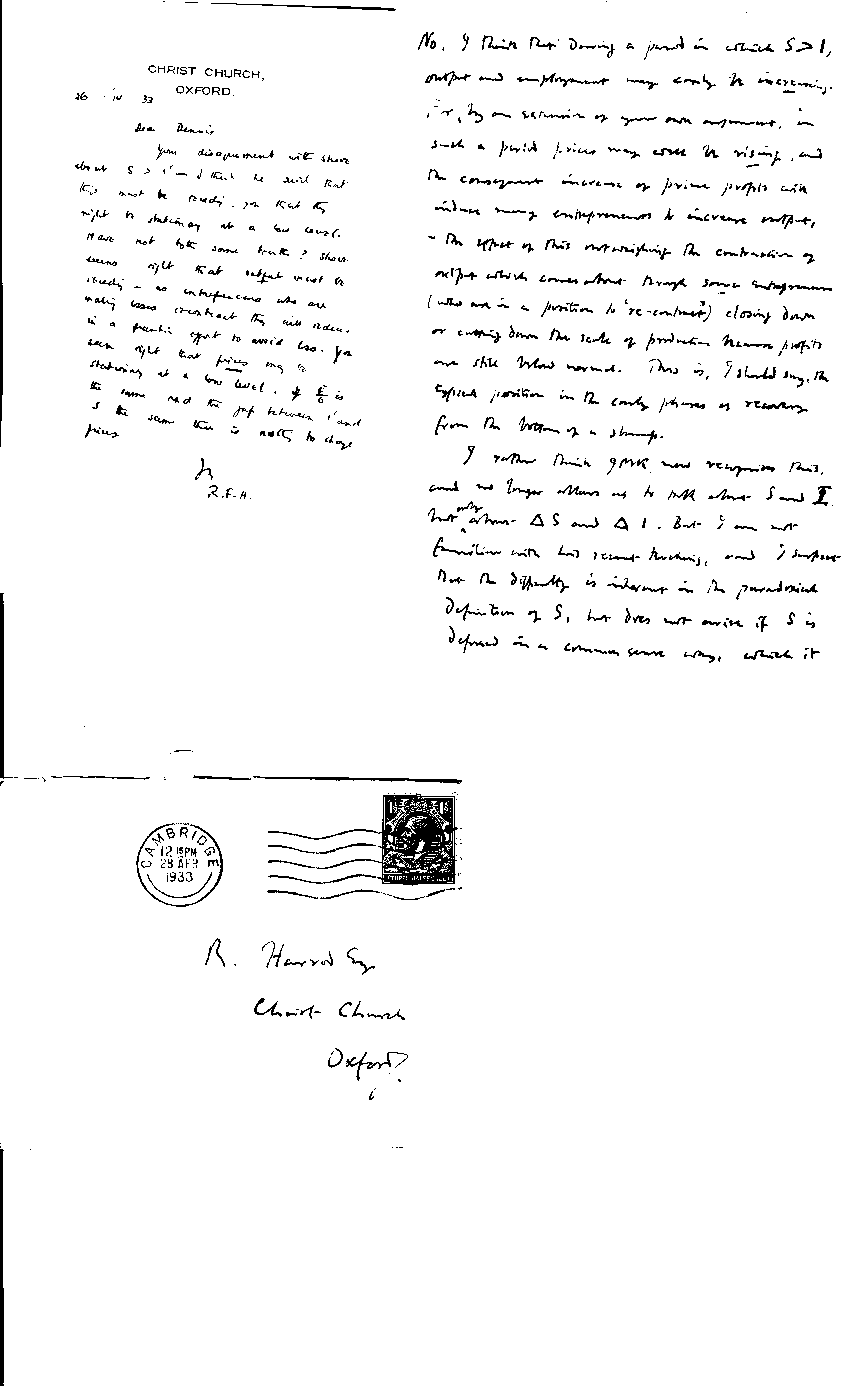 CHRIST CHURCH,
OXFORD.
26 . iv 33
Dear Dennis
Your disagreement with Shove
about S > I — I think he said that
this must be receding, you that they
might be stationary at a low level.
Have not both some truth? Shove
seems right that output must be
receding – as entrepreneurs who are
making losses contract they will reduce
in a frantic effort to avoid loss. You
seem right that prices may be
stationary at a low level. If E/O is
the same and the gap between I and
S the same there is nothing to change
prices
R.F.H.
No. I think that during a period in which S > I,
output and employment may easily be increasing.
For, by an extension of your own argument, in
such a period prices may well be rising, and
the consequent increase of prime profits will
induce many entrepreneurs to increase output,
– the effect of this outweighing the contraction of
output which comes about through some entrepreneurs
(who are in a position to 're-contract') closing down
or cutting down the scale of production because profits
are still below normal. This is, I should say, the
typical position in the early phases of recovery
from the bottom of a slump.
I rather think JMK now recognises this,
and no longer allows us to talk about S and I
but only about Δ S and Δ I. But I am not
familiar with his recent thinking, and I suspect
that the difficulty is inherent in the paradoxical
definition of S, but does not arise if S is
defined in a common sense way, which it
CAMBRIDGE
12 15 PM
28 APR
1933
R. Harrod Esq
Christ Church
Oxford